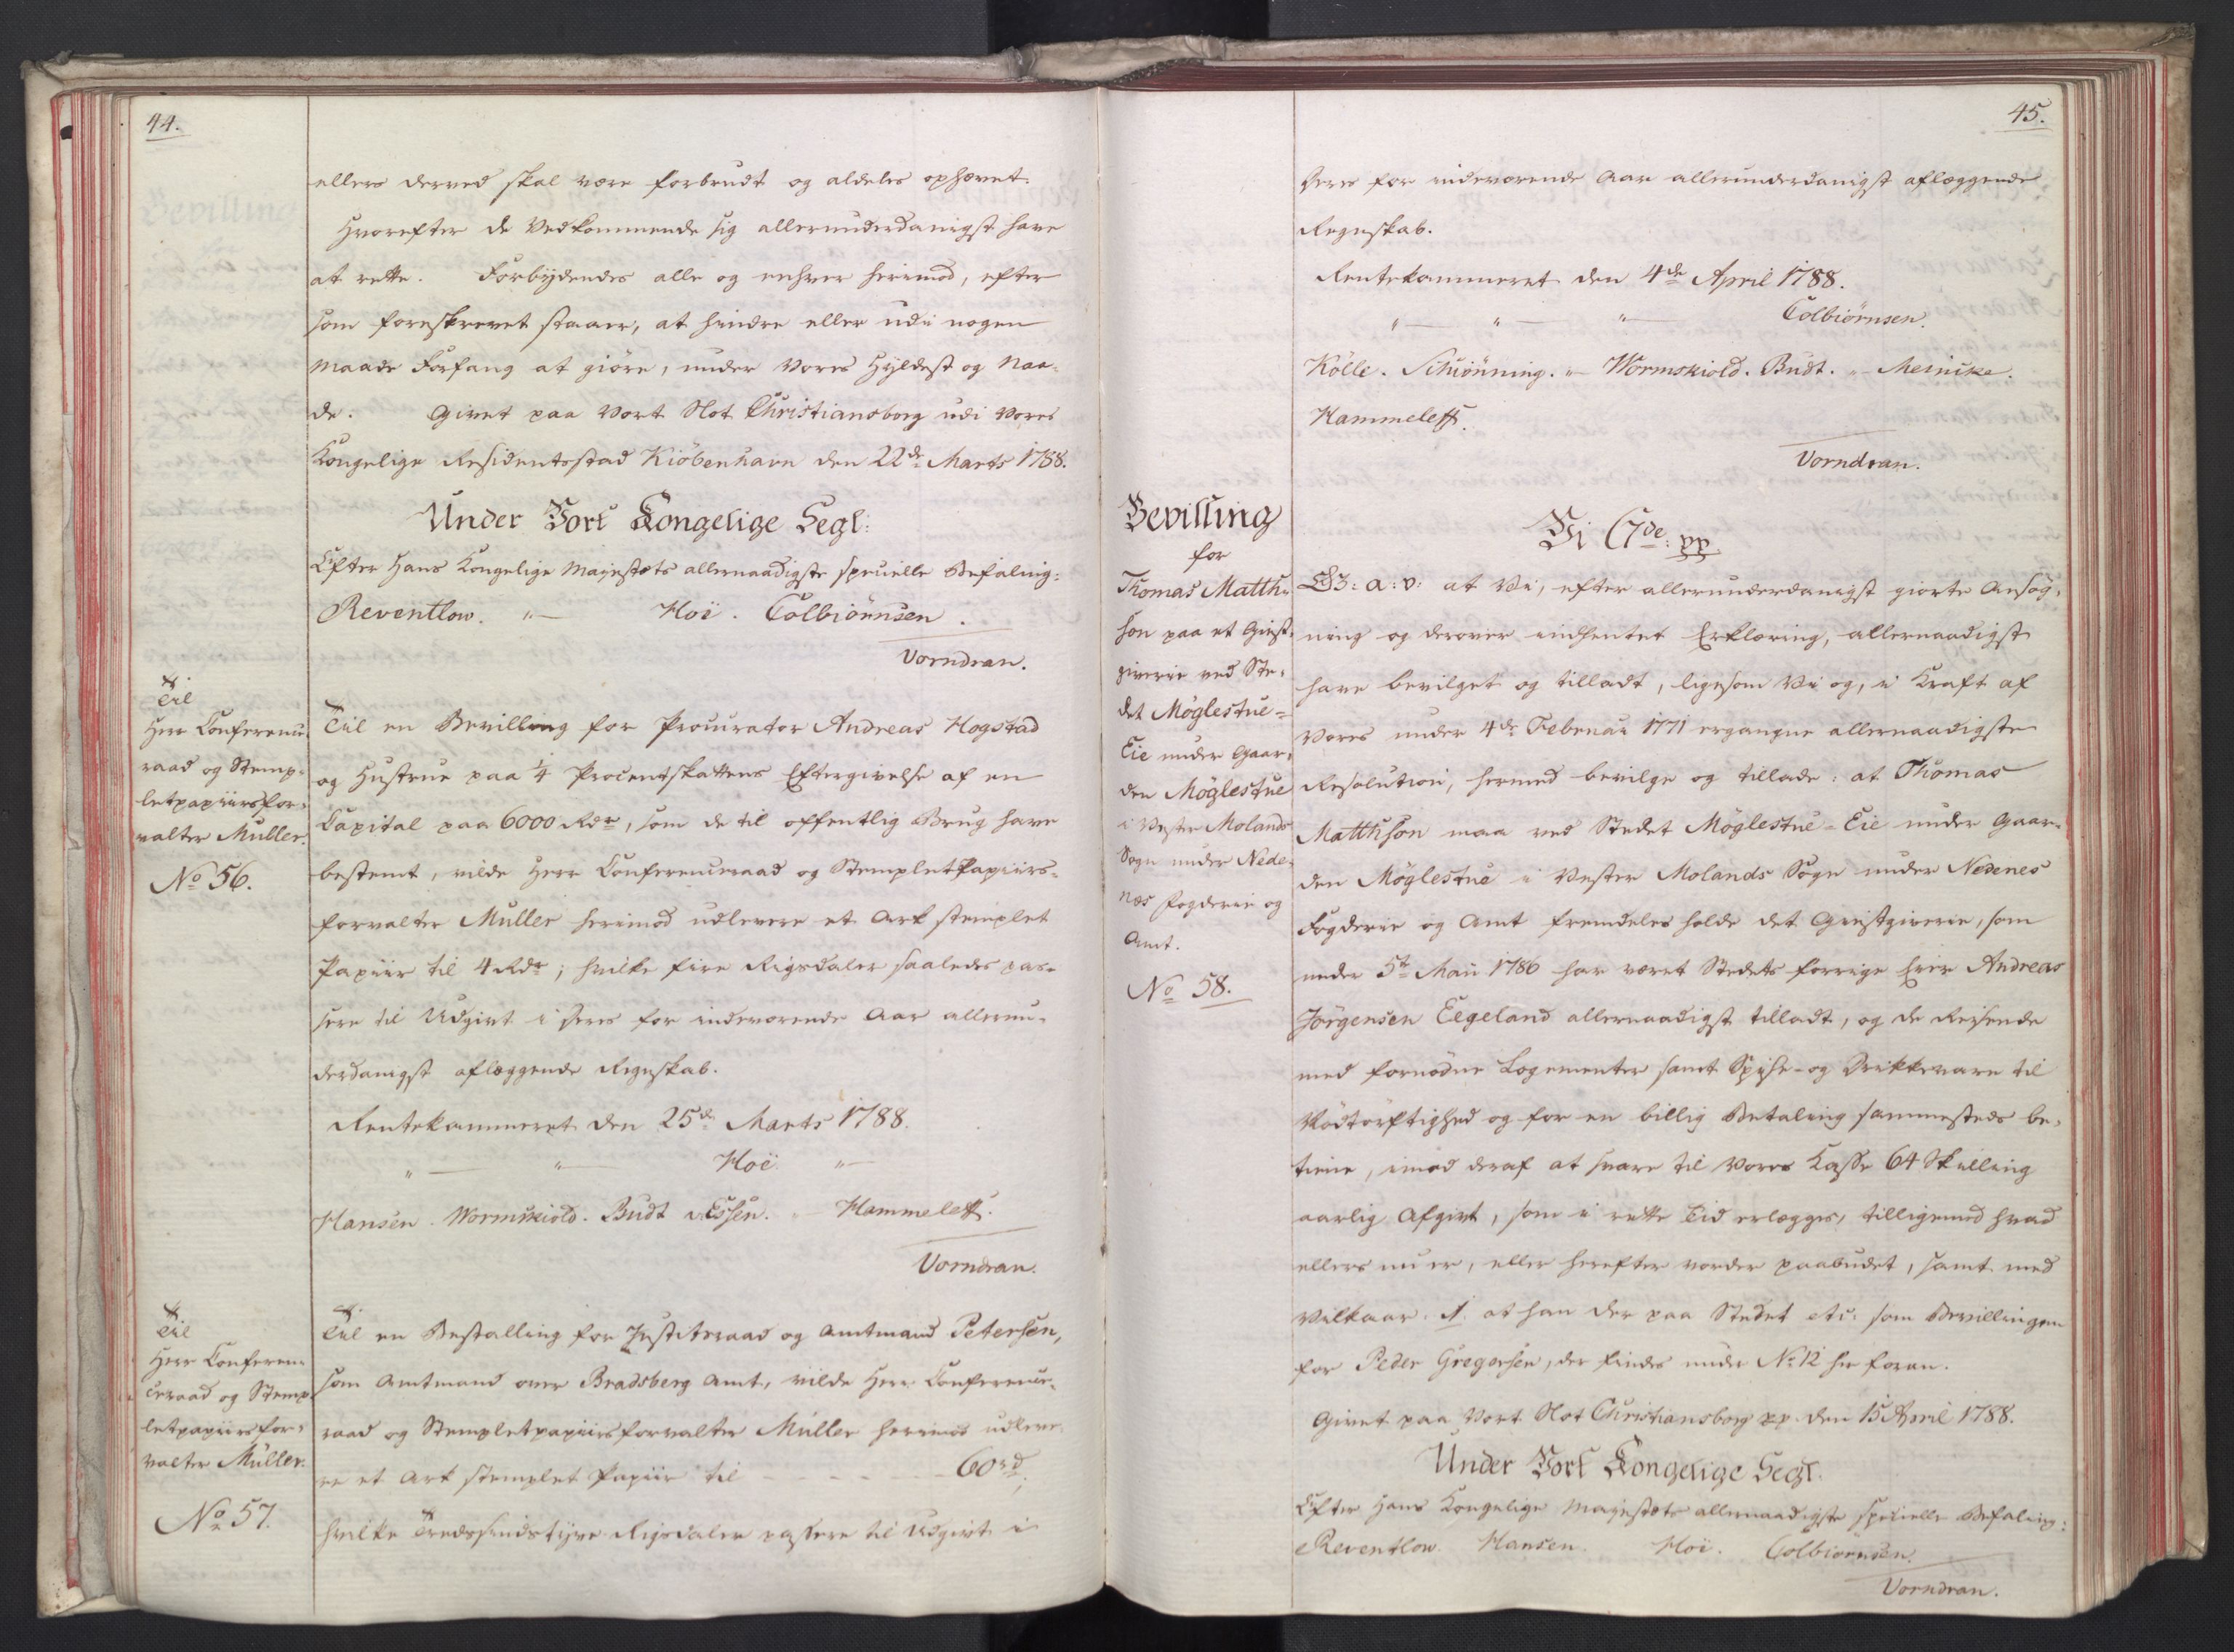 44.
ellers derved skal være forbrudt og aldeles ophævet.
Hvorefter de Vedkommende sig allerunderdanigst have
at rette. Forbydendes alle og enhver herimod, efter
som foreskrevet staaer, at hindre eller udi nogen
Maade Forfang at giöre, under Vores Hyldest og Naa-
de. Givet paa Vort Slot Christiansborg udi Vores
Kongelige Residentsstad Kiöbenhavn den 22de Marts 1788.
Under Vort Kongelige Segl:
Efter Hans Kongelige Majestæts allernaadigste specielle Befaling:
Reventlow. "— Hoë. Colbiörnsen.
Vorndran.
Til
Herr Conference-
raad og Stemp-
letpapiirsfor-
valter Müller.
No 56.
Til en Bevilling for Procurator Andreas Hogstad
og Hustrue paa 1/4 Procentskattens Eftergivelse af en
Capital paa 6000 Rdr, som de til offentlig Brug have
bestemt, vilde Herr Conferenceraad og StempletPapiirs-
forvalter Müller herimod udlevere et Ark stemplet
Papiir til 4 Rdr; hvilke fire Rigsdaler saaledes pas-
sere til Udgivt i hans for indeværende Aar allerun-
derdanigst aflæggende Regnskab.
Rentekammeret den 25de Marts 1788.
"— "— Hoë. "—
Hansen. Wormskiold. Budt v. Essen. "— Hammeleff.
Vorndran.
Til
Herr Conferen-
ceraad og Stemp-
letpapiirsfor-
valter Müller.
No 57.
Til en Bestalling for Justitsraad og Amtmand Petersen,
som Amtmand over Bradsberg Amt, vilde Herr Conference-
raad og Stempletpapiirsforvalter Müller herimod udleve-
re et Ark stemplet Papiir til - - - 60 rd,
hvilke Tredssindstyve Rigsdaler passere til Udgivt i
45.
hans for indeværende Aar allerunderdanigst aflæggende
Regnskab.
Rentekammeret den 4de April 1788.
"— "— "— Colbiörnsen.
Kölle. Schiönning. "— Wormskiold. Budt. "— Meincke.
Hammeleff.
Vorndran.
Bevilling
for
Thomas Matth-
son paa et Giest-
giverie ved Ste-
det Möglestue-
Eie under Gaar-
den Möglestue
i Vester Molands
Sogn under Nede-
næs Fogderie og
Amt.
No 58.
Vi C 7de: pp.
G: a: v: at Vi, efter allerunderdanigst giorte Ansög-
ning og derover indhentet Erklæring, allernaadigst
have bevilget og tilladt, ligesom Vi og, i Kraft af
Vores under 4de Februar 1771 ergangne allernaadigste
Resolution, hermed bevilge og tillade: at Thomas
Matthson maa ved Stedet Möglestue-Eie under Gaar-
den Möglestue i Vester Molands Sogn under Nedenes
Fogderie og Amt fremdeles holde det Giestgiverie, som
under 5te Maii 1786 har været Stedets forrige Eier Andreas
Jörgensen Eegeland allernaadigst tilladt, og de Reisende
med fornödne Logementer samt Spise- og Drikkevare til
Nödtörftighed og for en billig Betaling sammesteds be-
tiene, imod deraf at svare til Vores Kasse 64 Skilling
aarlig Afgivt, som i rette Tid erlægges, tilligemed hvad
ellers nu er, eller herefter vorder paabudet, samt med
Vilkaar. 1. at han der paa Stedet etc: som Bevillingen
for Peder Gregersen, der findes under No 12 her foran.
Givet paa Vort Slot Christiansborg pp. den 15 April 1788.
Under Vort Kongelige Segl.
Efter Hans Kongelige Majestæts allernaadigste specielle Befaling:
Reventlow. Hansen. Hoë. Colbiörnsen.
Vorndran.